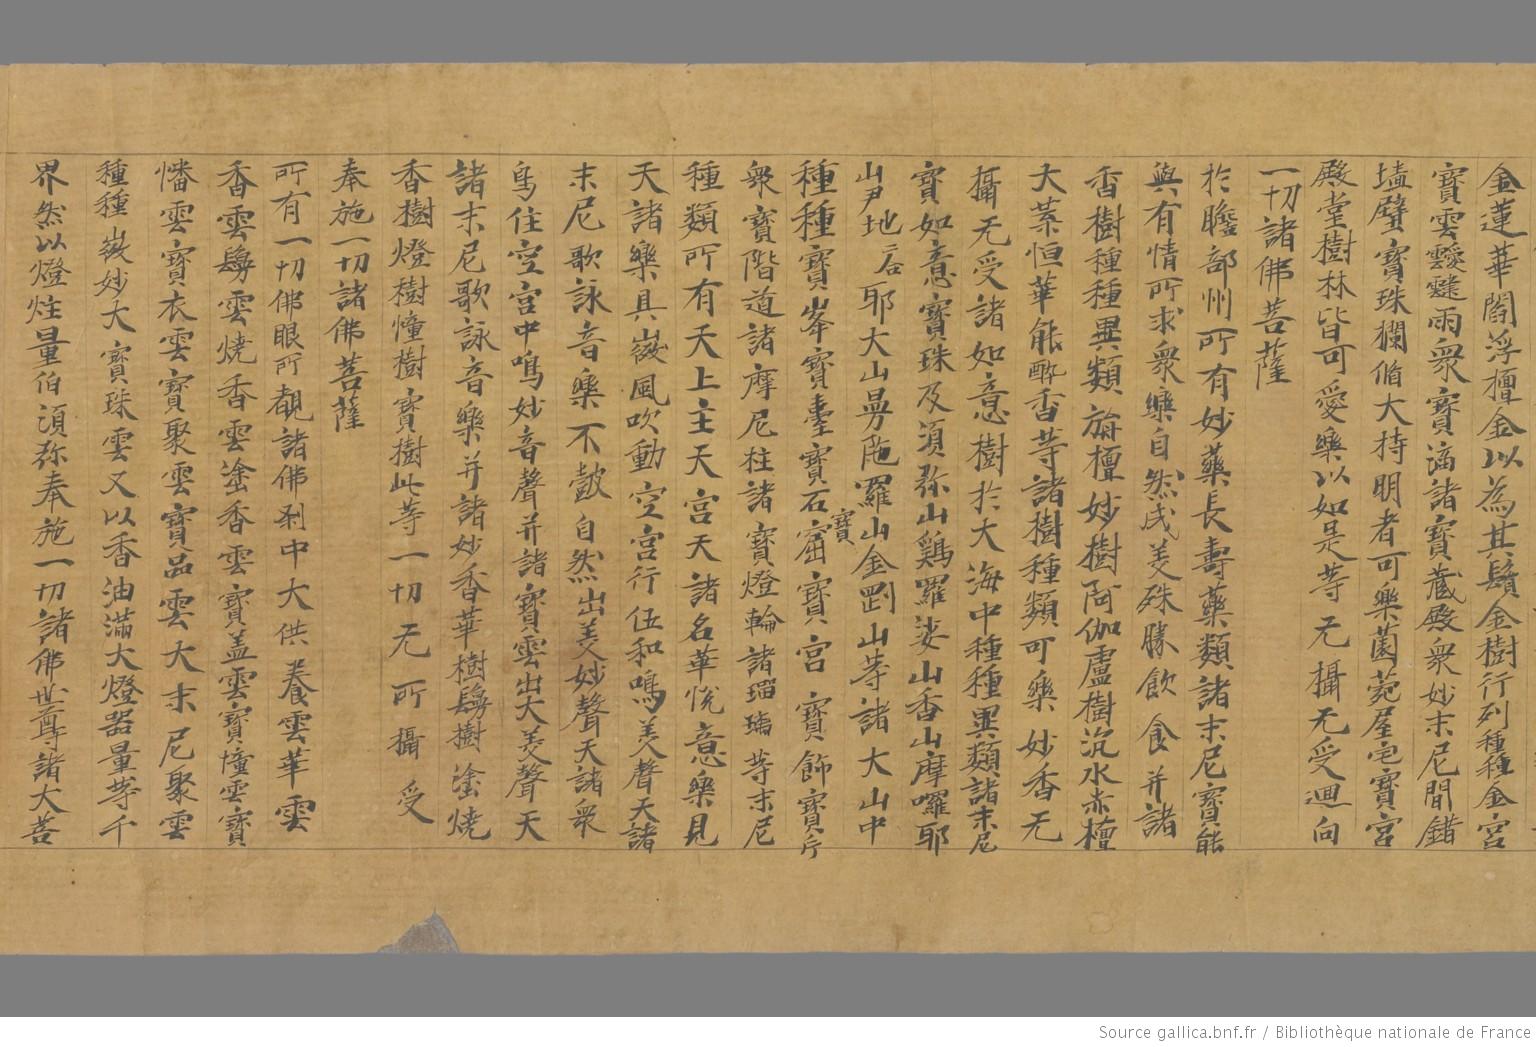 金蓮華閻浮檀金以為其鬚金樹行列種種金宮
寶雲靉靆雨衆寶渧諸寶蔵殿衆妙末尼間錯
墻壁寶珠欄楯大持明者可樂園苑屋宅寶宮
殿堂樹林皆可愛樂以如是等无攝无受迴向
一切諸佛菩薩
於贍部州所有妙藥長壽藥類諸末尼寶能
與有情所求衆樂自然成美殊勝飲食并諸
香樹種種異類旃檀妙樹阿伽盧樹沉水赤檀
大葉恒華能醉香等諸樹種類可樂妙香无
攝无受諸如意樹於大海中種種異類諸末尼
寶如意寶珠及須弥山鷄羅娑山香山摩囉耶
山尹地二合耶大山曼陁羅山金剛山等諸大山中
種種寶峯寶臺寶石窟寶宮寶飾寶片
寶
衆寶階道諸摩尼柱諸寶燈輪諸瑠璃等末尼
種類所有天上主天宮天諸名華悅意樂見
天諸樂具微風吹動空宮行伍和鳴美聲天諸
末尼歌詠音樂不鼓自然出美妙聲天諸衆
鳥住空宮中鳴妙音聲并諸寶雲出大美聲天
諸末尼歌詠音樂并諸妙香華樹鬘樹塗燒
香樹燈樹憧樹寶樹此等一切无所攝受
奉施一切諸佛菩薩
所有一切佛眼所覩諸佛刹中大供養雲華雲
香雲鬘雲燒香雲塗香雲寶盖雲寶憧雲寶
憣雲寶衣雲寶聚雲寶品雲大末尼聚雲
種種微妙大寶珠雲又以香油滿大燈器量等千
界然以燈炷量伯須弥奉施一切諸佛世尊諸大菩
Source gallica.bnf.fr / Bibliothèque nationale de France